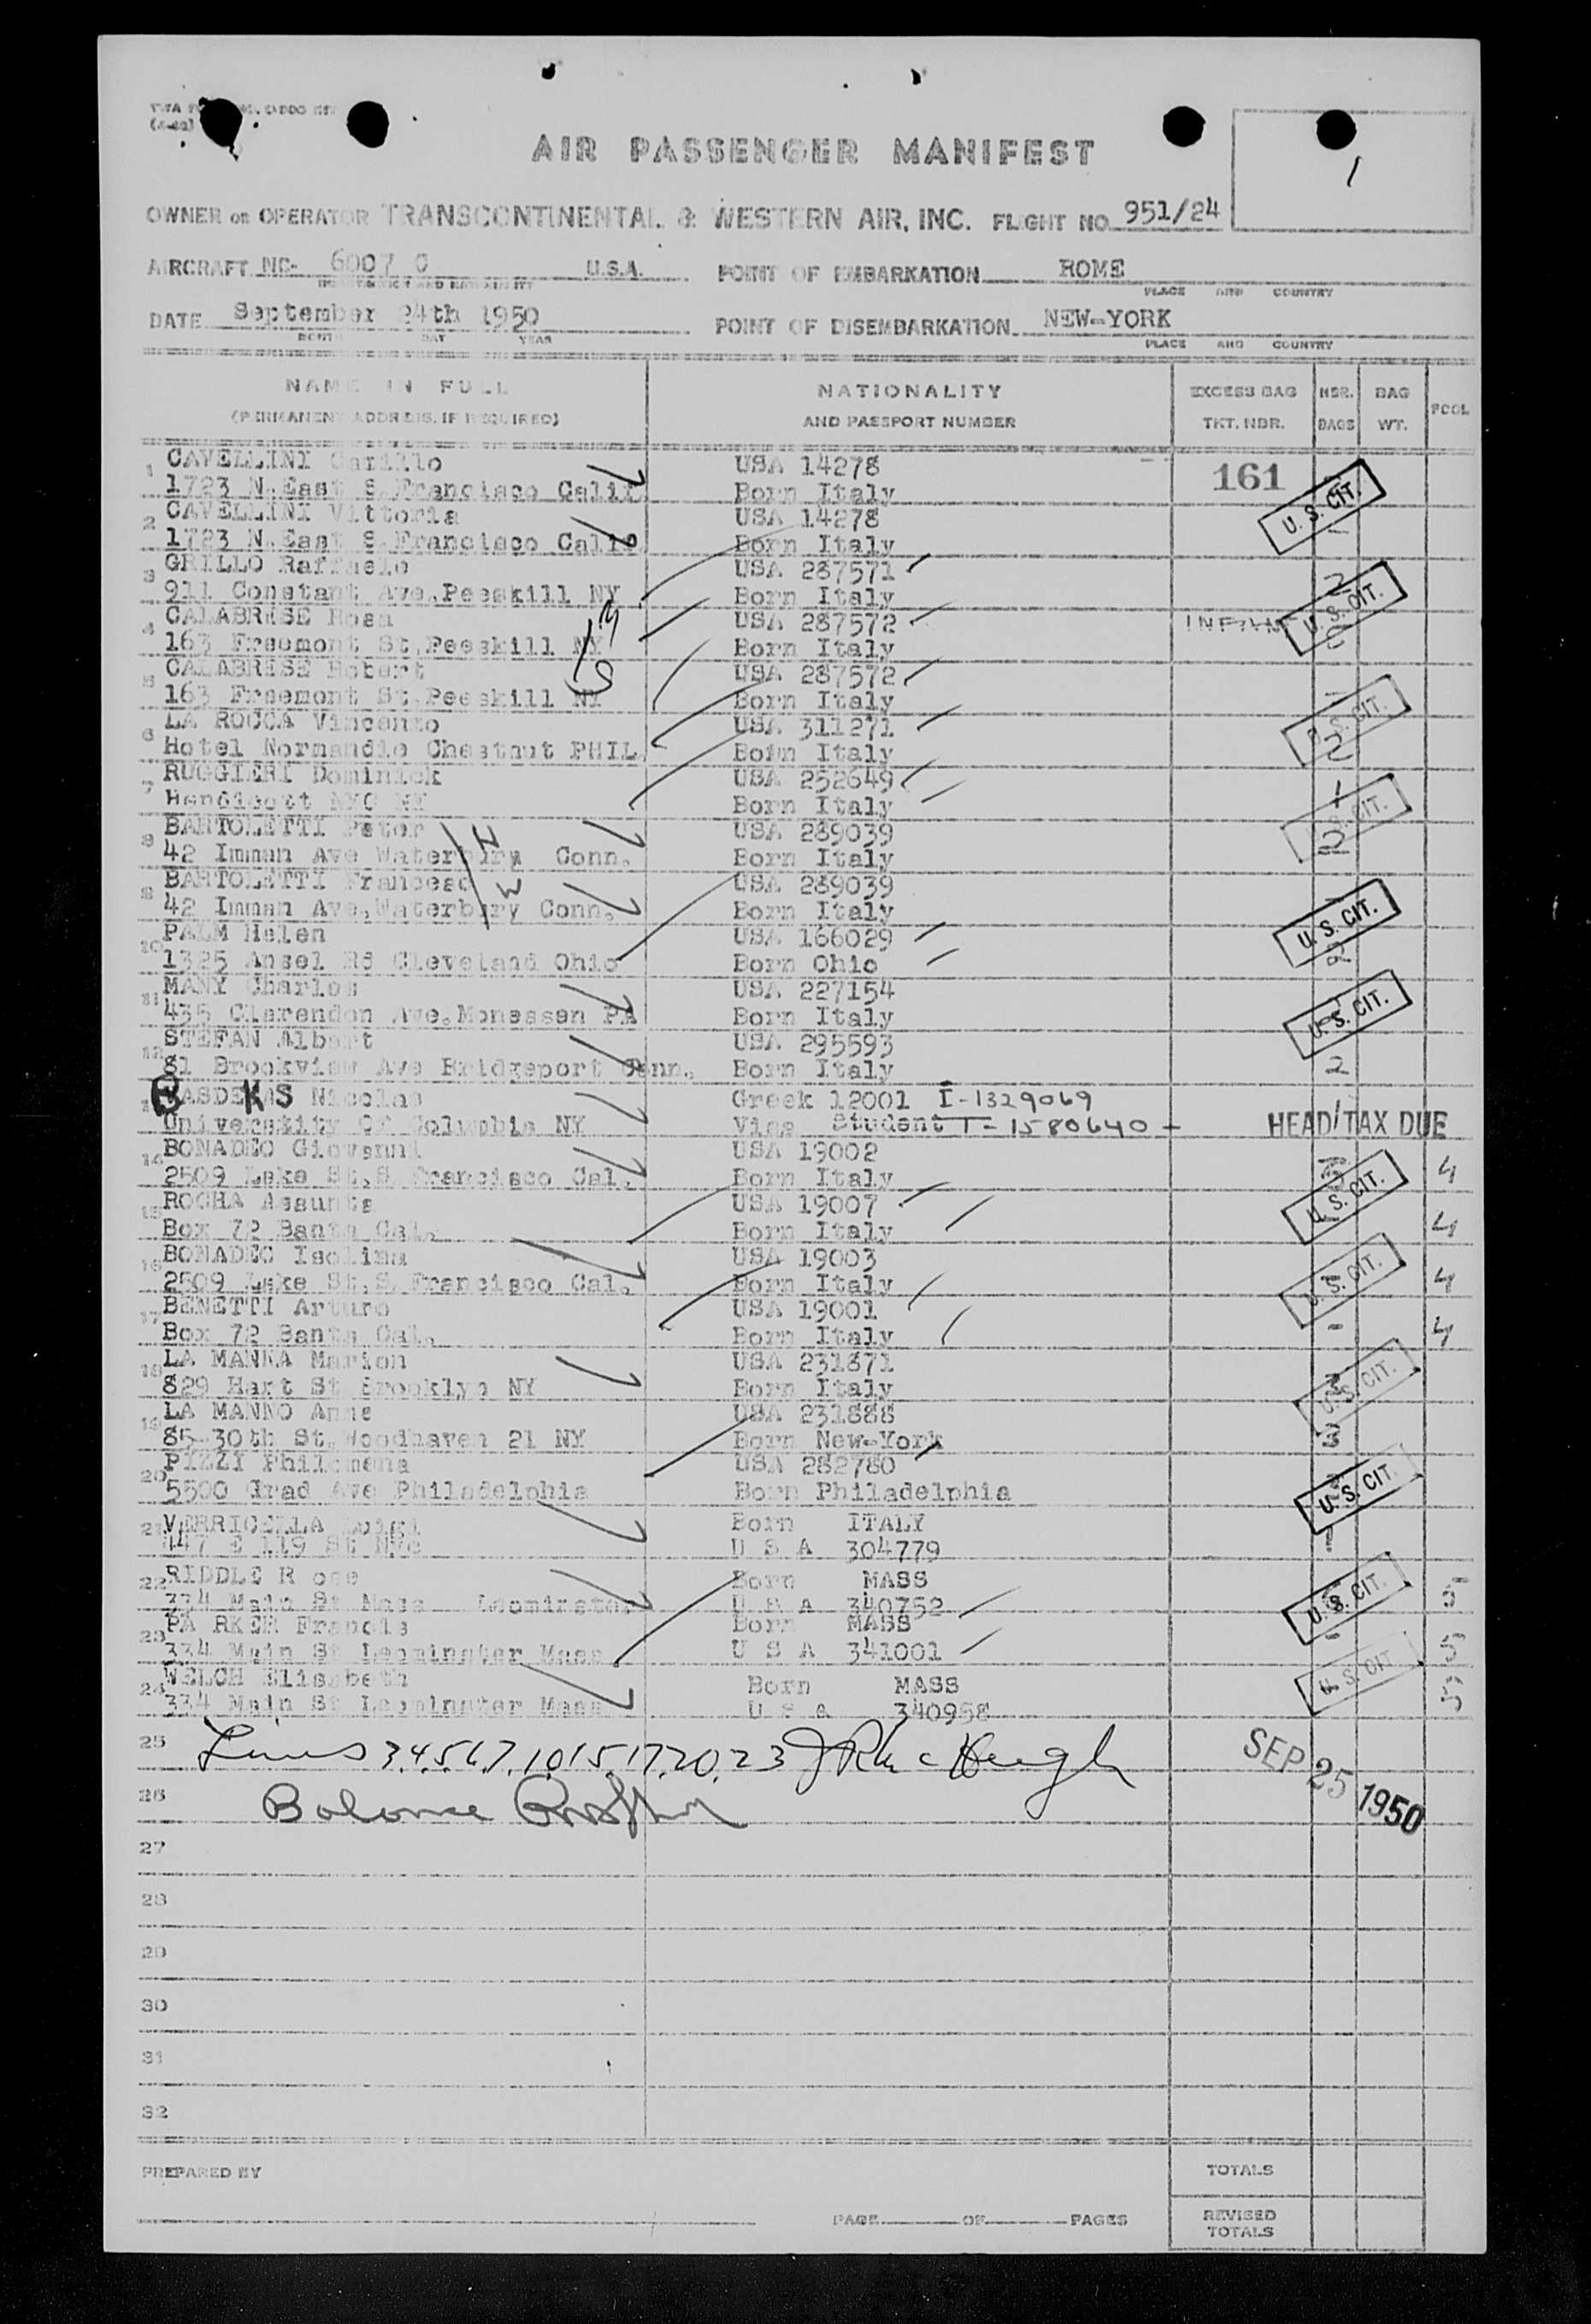 (4-49)
1
AIR PASSENGER MANIFEST
OWNER OR OPERATOR TRANSCONTINENTAL & WESTERN AIR, INC. FLIGHT NO 951/24
AIRCRAFT NO- 6007 C U.S.A. POINT OF EMBARKATION ROME
PLACE AND COUNTRY
DATE September 24th 1950 POINT OF DISEMBARKATION NEW-YORK
MONTH DAY YEAR PLACE AND COUNTRY
NAME IN FULL NATIONALITY EXCESS BAG NBR. BAG POOL
(PERMANENT ADDRESS, IF REQUIRED) AND PASSPORT NUMBER TKT. NBR. BAGS WT.
1 CAVELLINI Carillo USA 14278 161
1723 N.East S.Francisco Calif Born Italy U. S. CIT.
2 CAVELLINI Vittoria USA 14278
1723 N.East S.Francisco Calif. Born Italy
3 GRILLO Raffaelo USA 287571 2
911 Constant Ave,Peeskill NY Born Italy U. S. CIT.
4 CALABRESE Rosa USA 287572 INFANT
163 Freemont St,Peeskill NY Born Italy
5 CALABRESE Robert USA 287572
163 Freemont St,Peeskill NY Born Italy
6 LA ROCCA Vincenzo USA 311271 U. S. CIT.
Hotel Normandie Chestnut PHIL. Born Italy 2
7 RUGGIERI Dominick USA 252649 1
Hendicott NYC NY Born Italy U. S. CIT.
8 BARTOLETTI Peter USA 289039 2
42 Inman Ave Waterbury Conn. Born Italy
9 BARTOLETTI Francesco USA 289039
42 Inman Ave,Waterbury Conn. Born Italy U. S. CIT.
10 PALM Helen USA 166029
1325 Ansel Rd Cleveland Ohio Born Ohio 2
11 MANY Charles USA 227154
435 Clarendon Ave.Monessen PA Born Italy U. S. CIT.
12 STEFAN Albert USA 295593
81 Brookview Ave Bridgeport Conn. Born Italy 2
KS Nicolas Greek 12001 I-1329069
University Of Colombia NY Visa Student T-1580640 - HEAD TAX DUE
14 BONADEO Giovanni USA 19002
2509 Lake St,S.Francisco Cal. Born Italy U. S. CIT. 4
15 ROCHA Assunta USA 19007
Box 72 Banta Cal. Born Italy 4
16 BONADEO Isolina USA 19003
2509 Lake St,S.Francisco Cal. Born Italy U. S. CIT. 4
17 BENETTI Arturo USA 19001
Box 72 Banta Cal. Born Italy - 4
18 LA MANNA Marion USA 231871
829 Hart St Brooklyn NY Born Italy U. S. CIT.
19 LA MANNO Anne USA 231888
85-30th St.Woodhaven 21 NY Born New-York 3
20 PIZZI Philomena USA 282780
5500 Grad Ave Philadelphia Born Philadelphia U. S. CIT.
21 VERRICELLA Luigi Born ITALY
447 E 119 St NYC U S A 304779 1
22 RIDDLE R ose Born MASS
334 Main St Mass Leominster U S A 340752 U. S. CIT. 5
23 PA RKER Francis Born MASS
334 Main St Leominster Mass U S A 341001 - 5
24 WELCH Elisabeth Born MASS U. S. CIT.
334 Main St Leominster Mass U S A 340958 5
25 Lines 3.4.5.6.7.10.15.17.20.23
SEP 25 1950
26 Balance
27
28
29
30
31
32
PREPARED BY TOTALS
PAGE OF PAGES REVISED TOTALS